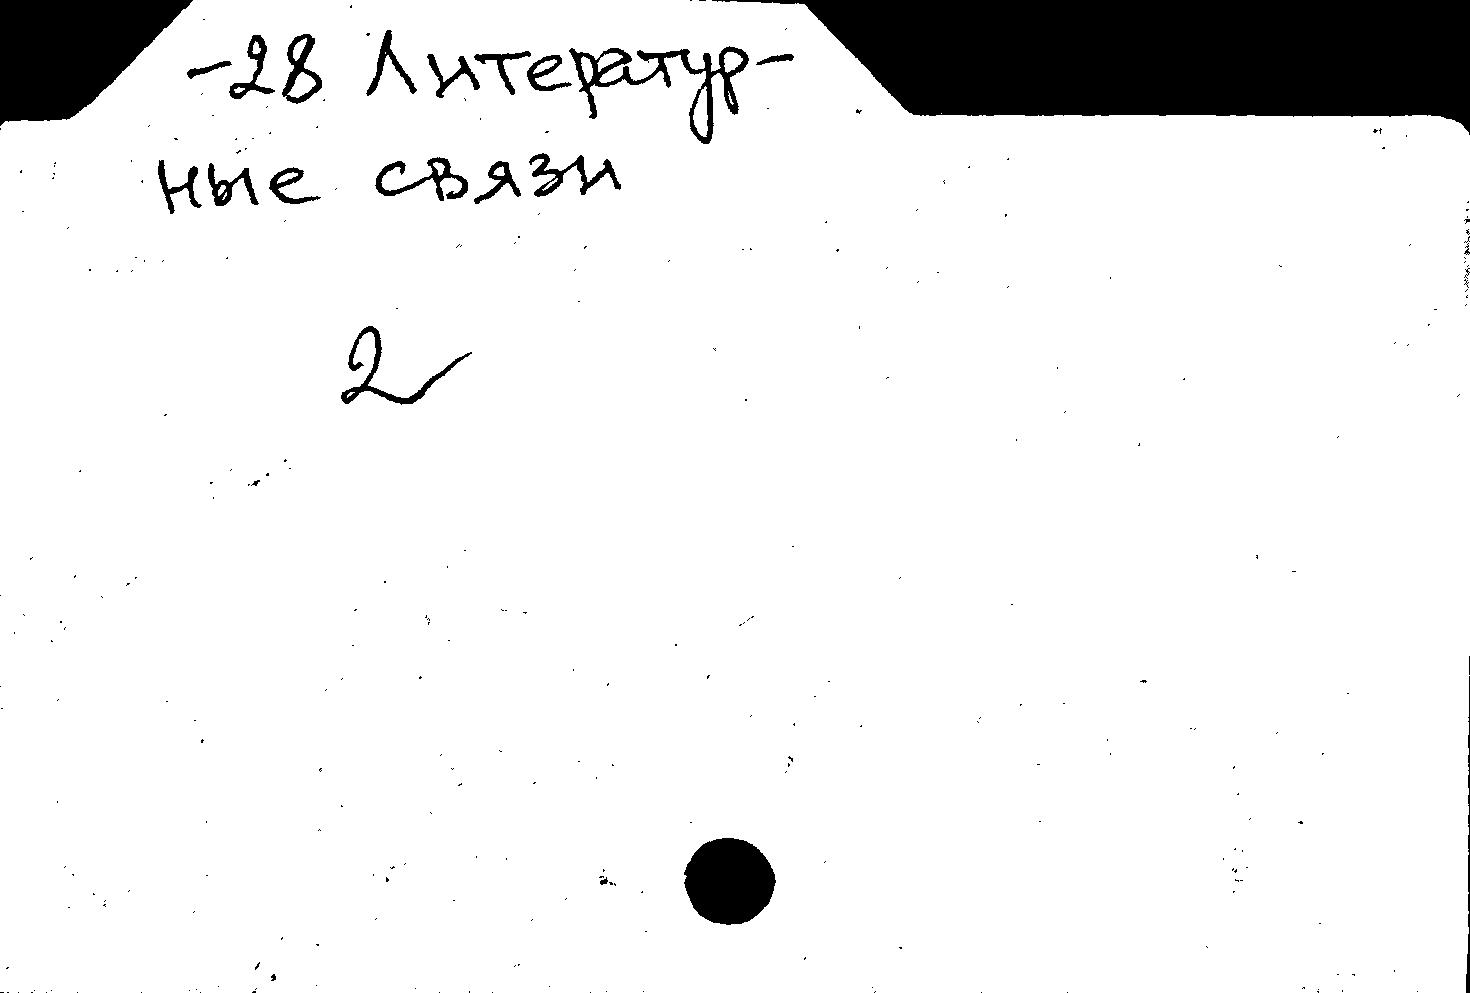 -28 Литератур-
ные связи
2